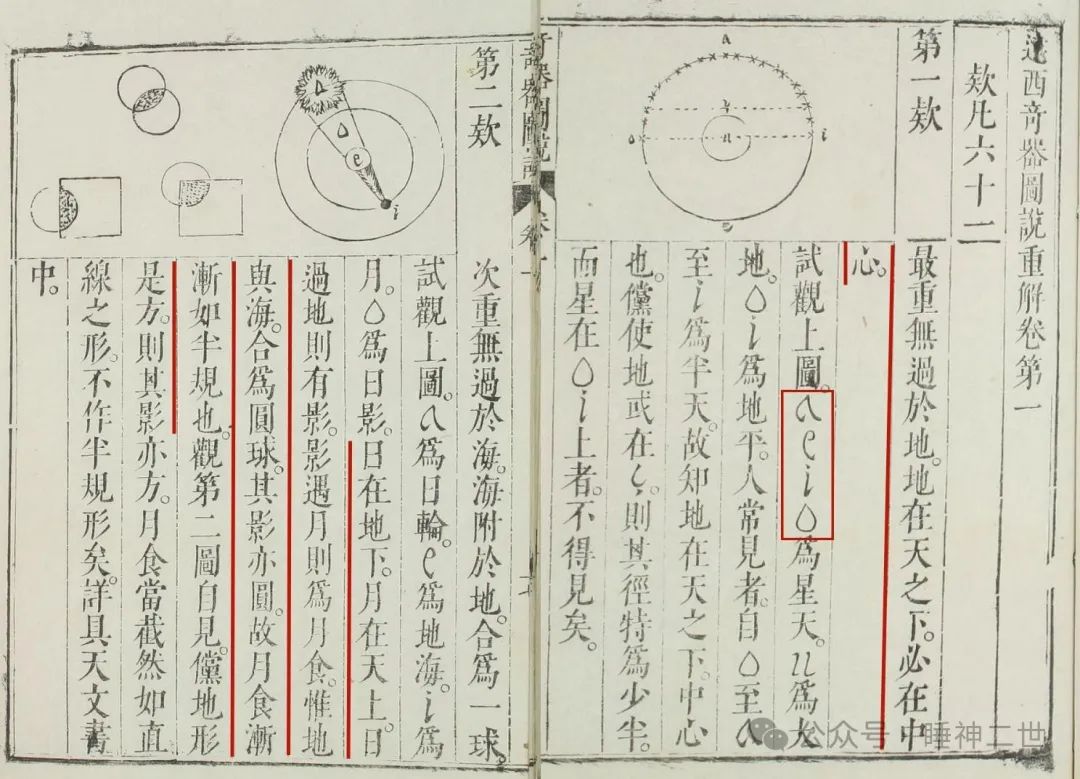 遠西奇器圖說重解卷第一
欵凡六十二
第一欵
A
o
i
u
最重無過於地。地在天之下。必在中
心。
試觀上圖。a e i o 爲星天。u 爲大
地。o i 爲地平。人常見者。自 o 至 a
至 i 爲半天。故知地在天之下。中心
也。儻使地或在 ,則其徑特爲少半。
而星在 o i 上者。不得見矣。
第二欵
e
i
次重無過於海。海附於地。合爲一球。
試觀上圖。a 爲日輪。e 爲地海。i 爲
月。o 爲日影。日在地下。月在天上。日
過地則有影。影遇月則爲月食。惟地
與海。合爲圓球。其影亦圓。故月食漸
漸如半規也。觀第二圖自見。儻地形
是方。則其影亦方。月食當截然如直
線之形。不作半規形矣。詳具天文書
中。
公众号 · 睡神二世